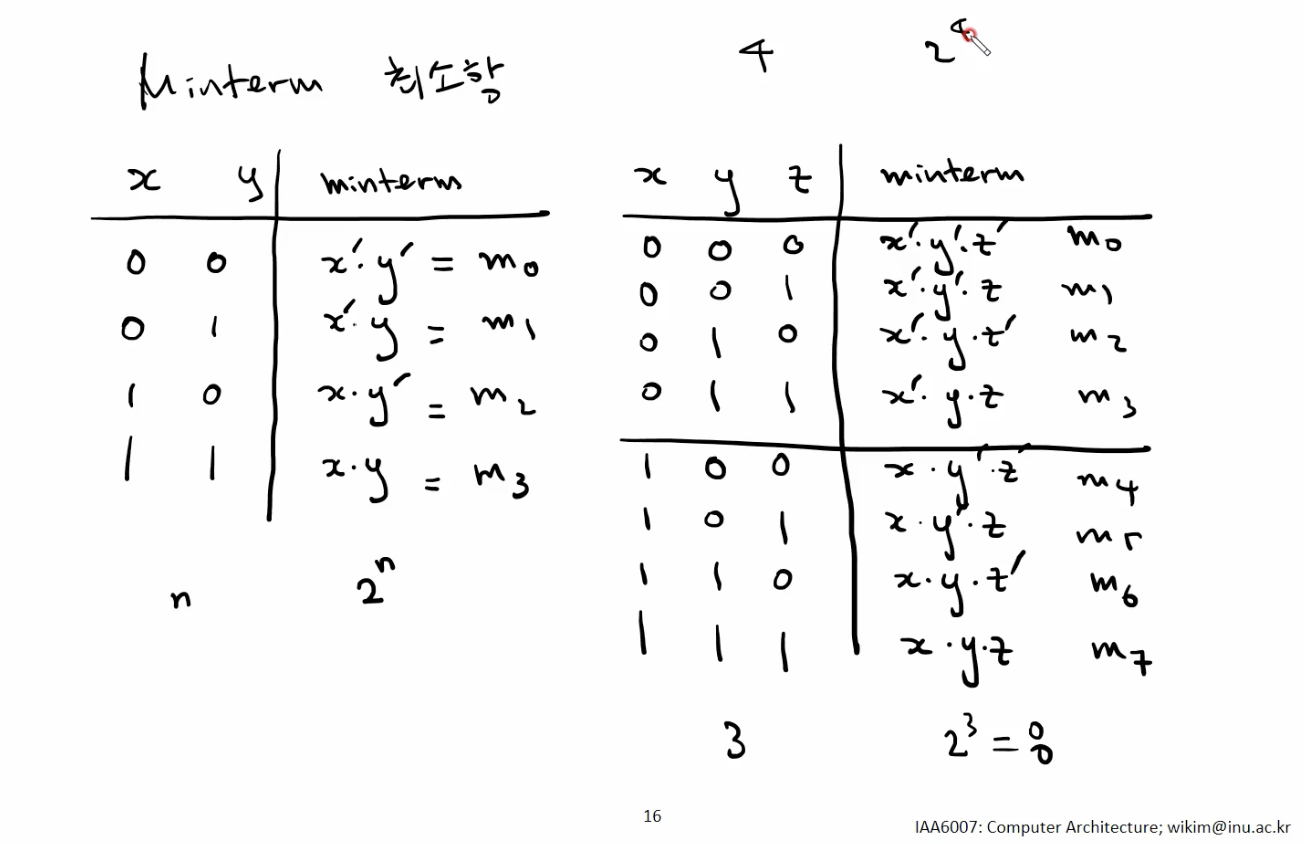 Minterm 최소항
4 2^4
x y minterm
0 0 x'·y' = m₀
0 1 x'·y = m₁
1 0 x·y' = m₂
1 1 x·y = m₃
n 2ⁿ
x y z minterm
0 0 0 x'·y'·z' m₀
0 0 1 x'·y'·z m₁
0 1 0 x'·y·z' m₂
0 1 1 x'·y·z m₃
1 0 0 x·y'·z' m₄
1 0 1 x·y'·z m₅
1 1 0 x·y·z' m₆
1 1 1 x·y·z m₇
3 2³ = 8
16
IAA6007: Computer Architecture; wikim@inu.ac.kr